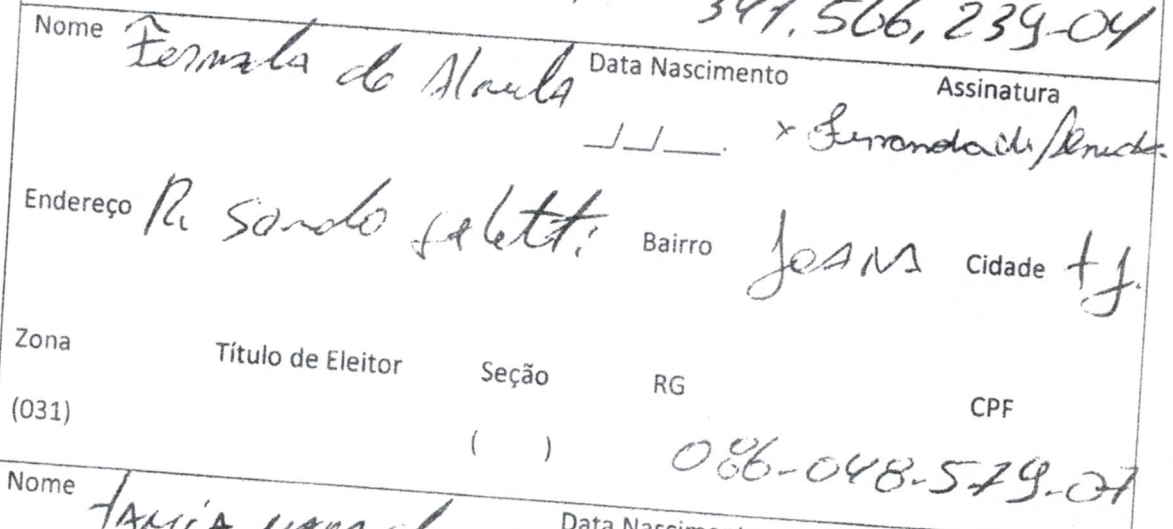 341.506,239-04
Nome Fernanda de Almeida Data Nascimento Assinatura
__/__/___. x Fernanda de Almeida
Endereço R. Sando Bairro JOANA Cidade
Zona Título de Eleitor Seção RG CPF
(031) ( ) 086-048-579-07
Nome TANIA Data Nascimento